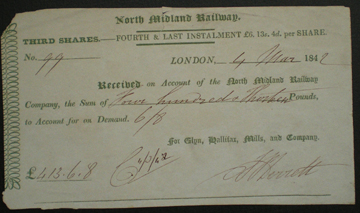 North Midland Railway.
THIRD SHARES.—FOURTH & LAST INSTALMENT £6. 13s. 4d. per SHARE.
No. 99 LONDON, 4 Mar 1842
Received on Account of the North Midland Railway
Company, the Sum of Four hundred & thirteen Pounds,
to Account for on Demand. 6/8
For Glyn, Hallifax, Mills, and Company.
£413.6.8 4/3/42